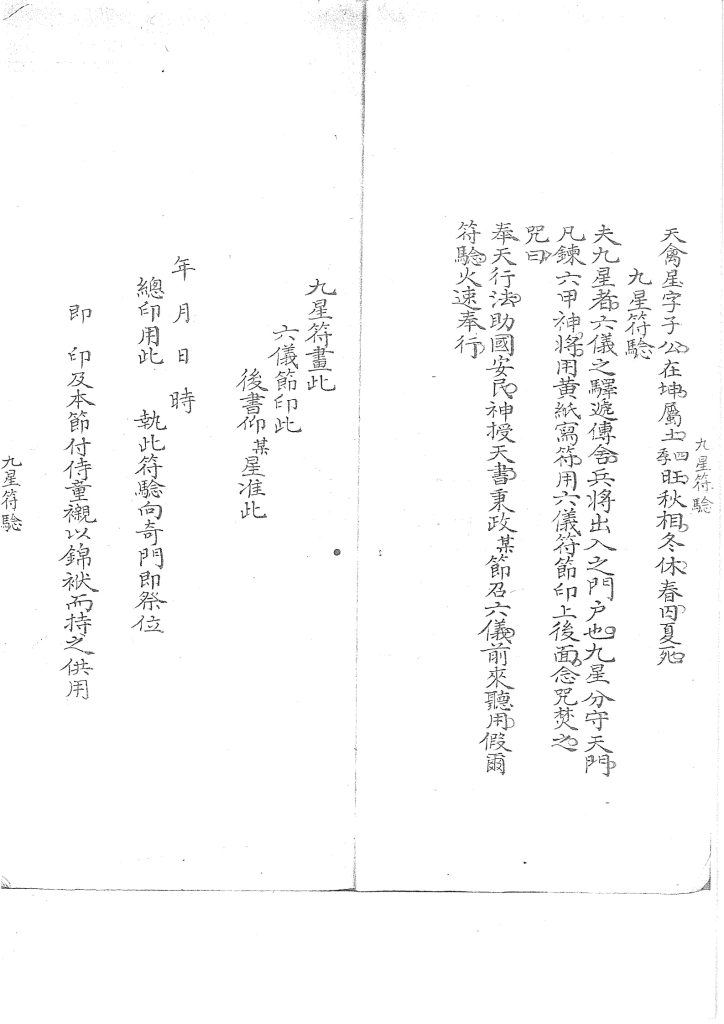 九星符驗
天禽星字子公在坤屬土四季旺秋相冬休春囚夏死
九星符驗
夫九星者六儀之驛遞傳舍兵將出入之門户也九星分守天門
凡鍊六甲神將用黄紙寫符用六儀符節印上後面念咒焚之
咒曰
奉天行法助國安民神授天書秉政某節召六儀前來聽用假爾
符驗火速奉行
九星符畫此
六儀節印此
後書仰某星准此
年月日時
總印用此 執此符驗向奇門即祭位
即 印及本節付侍童襯以錦袱而持之供用
九星符驗